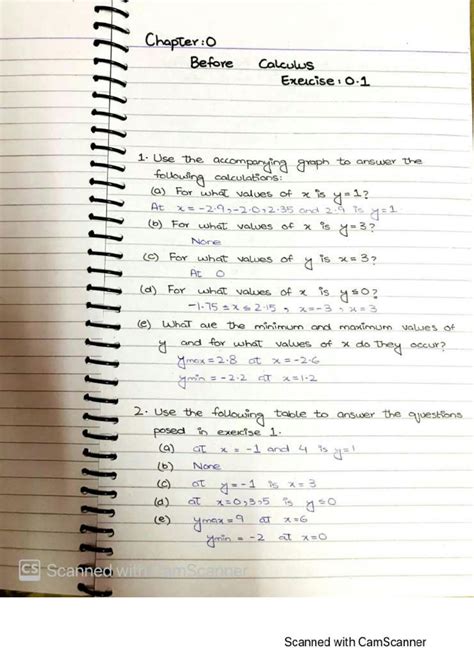 Chapter: 0
Before Calculus
Exercise: 0.1
1. Use the accompanying graph to answer the
following calculations:
(a) For what values of x is y=1?
At x = -2.9, -2.0, 2.35 and 2.9 is y=1
(b) For what values of x is y=3?
None
(c) For what values of y is x=3?
At 0
(d) For what values of x is y≤0?
-1.75 ≤ x ≤ 2.15, x=-3, x=3
(e) What are the minimum and maximum values of
y and for what values of x do they occur?
ymax = 2.8 at x = -2.6
ymin = -2.2 at x = 1.2
2. Use the following table to answer the questions
posed in exercise 1.
(a) at x = -1 and 4 is y=1
(b) None
(c) at y = -1 is x = 3
(d) at x=0,3,5 is y≤0
(e) ymax = 9 at x=6
ymin = -2 at x=0
CS Scanned with CamScanner
Scanned with CamScanner